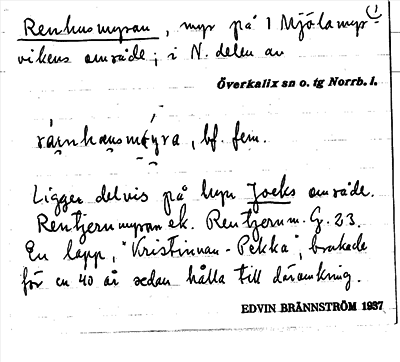 Renhusmyran, myr på 1 Mjölamyr-
vikens område; i N. delen av
Överkalix sn o. tg Norrb. l.
bf. fem.
Ligger delvis på byn Jocks område.
Rentjernmyran ek. Rentjernm. G. 23.
En lapp, "Kristinnan-Pekka", brukade
för en 40 år sedan hålla till däromkring.
EDVIN BRÄNNSTRÖM 1937